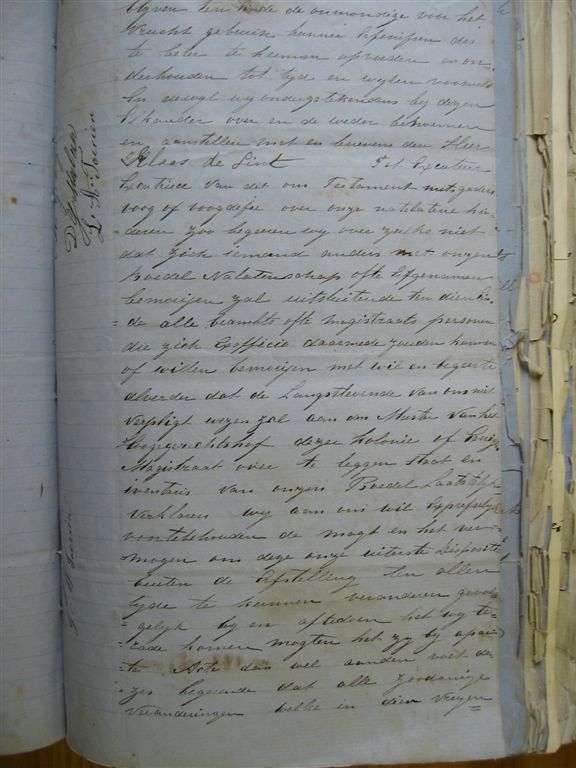 blyven ten einde de onmondige voor het
vrucht gebruik hunner
te beter te kunnen opvoeden en on
derhouden tot tyd en wylen voormeld
In dewyl wy ondergetekendens by dezen
elkander over en de weder bekennen
en aanstellen met en benevens den Heer
Klaas de Lint Tot Executeur
Executrice van dit ons Testament mitsgaders
voog of voogdesse over onze natelatene kin
deren zoo begeeren wy over zulks niet
dat zich iemand anders met onzen
Boedel Nalatenschap ofte Erfgenamen
bemoeijen zal uitsluitende ten dien ein
= de alle beambts ofte magistraats persoonen
die zich Exofficie daarmede zouden kunnen
of willen bemoeijen met wil en begeerte
alverder dat de Langstlevende van ons niet
verpligt wezen zal aan den Meester van het
Hooggerechtshof dezer kolonie of
Magistraat over te leggen staat en
inventris van onzen Boedel Laatstelyk
verklaren wy aan ons wil Expresselyk
voortebehouden de magt en het ver=
mogen om deze onze uiterste dispositie
buiten de Afstelling ten allen
tyde te kunnen veranderen
gelyk by en
rade komen mogten het zy by apar
te Acte dan wel aanden voet de
zes begeerende dat alle zoodanige
veranderingen welke in dier voegen=